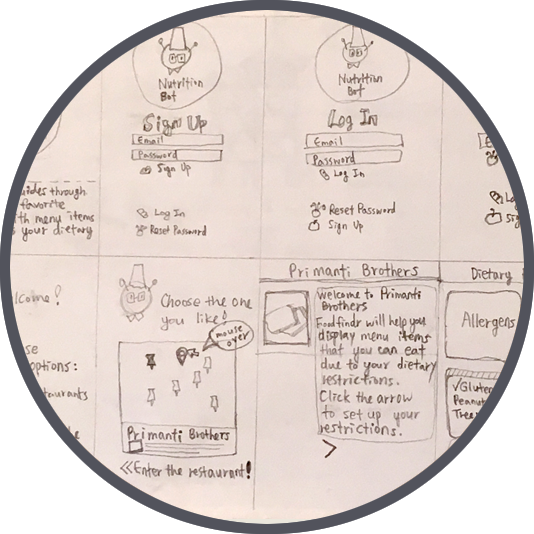 Nutrition
Bot
Sign Up
Email
Password
Sign Up
Log In
Reset Password
Nutrition
Bot
Log In
Email
Password
Log In
Reset Password
Sign Up
through
favorite
menu items
your dietary
Choose the one
you like!
mouse
over
Primanti Brothers
<<Enter the restaurant!
Primanti Brothers
Welcome to Primanti
Brothers
Foodfindr will help you
display menu items
that you can eat
due to your dietary
restrictions.
Click the arrow
to set up your
restrictions.
>
Dietary
Allergens
options: